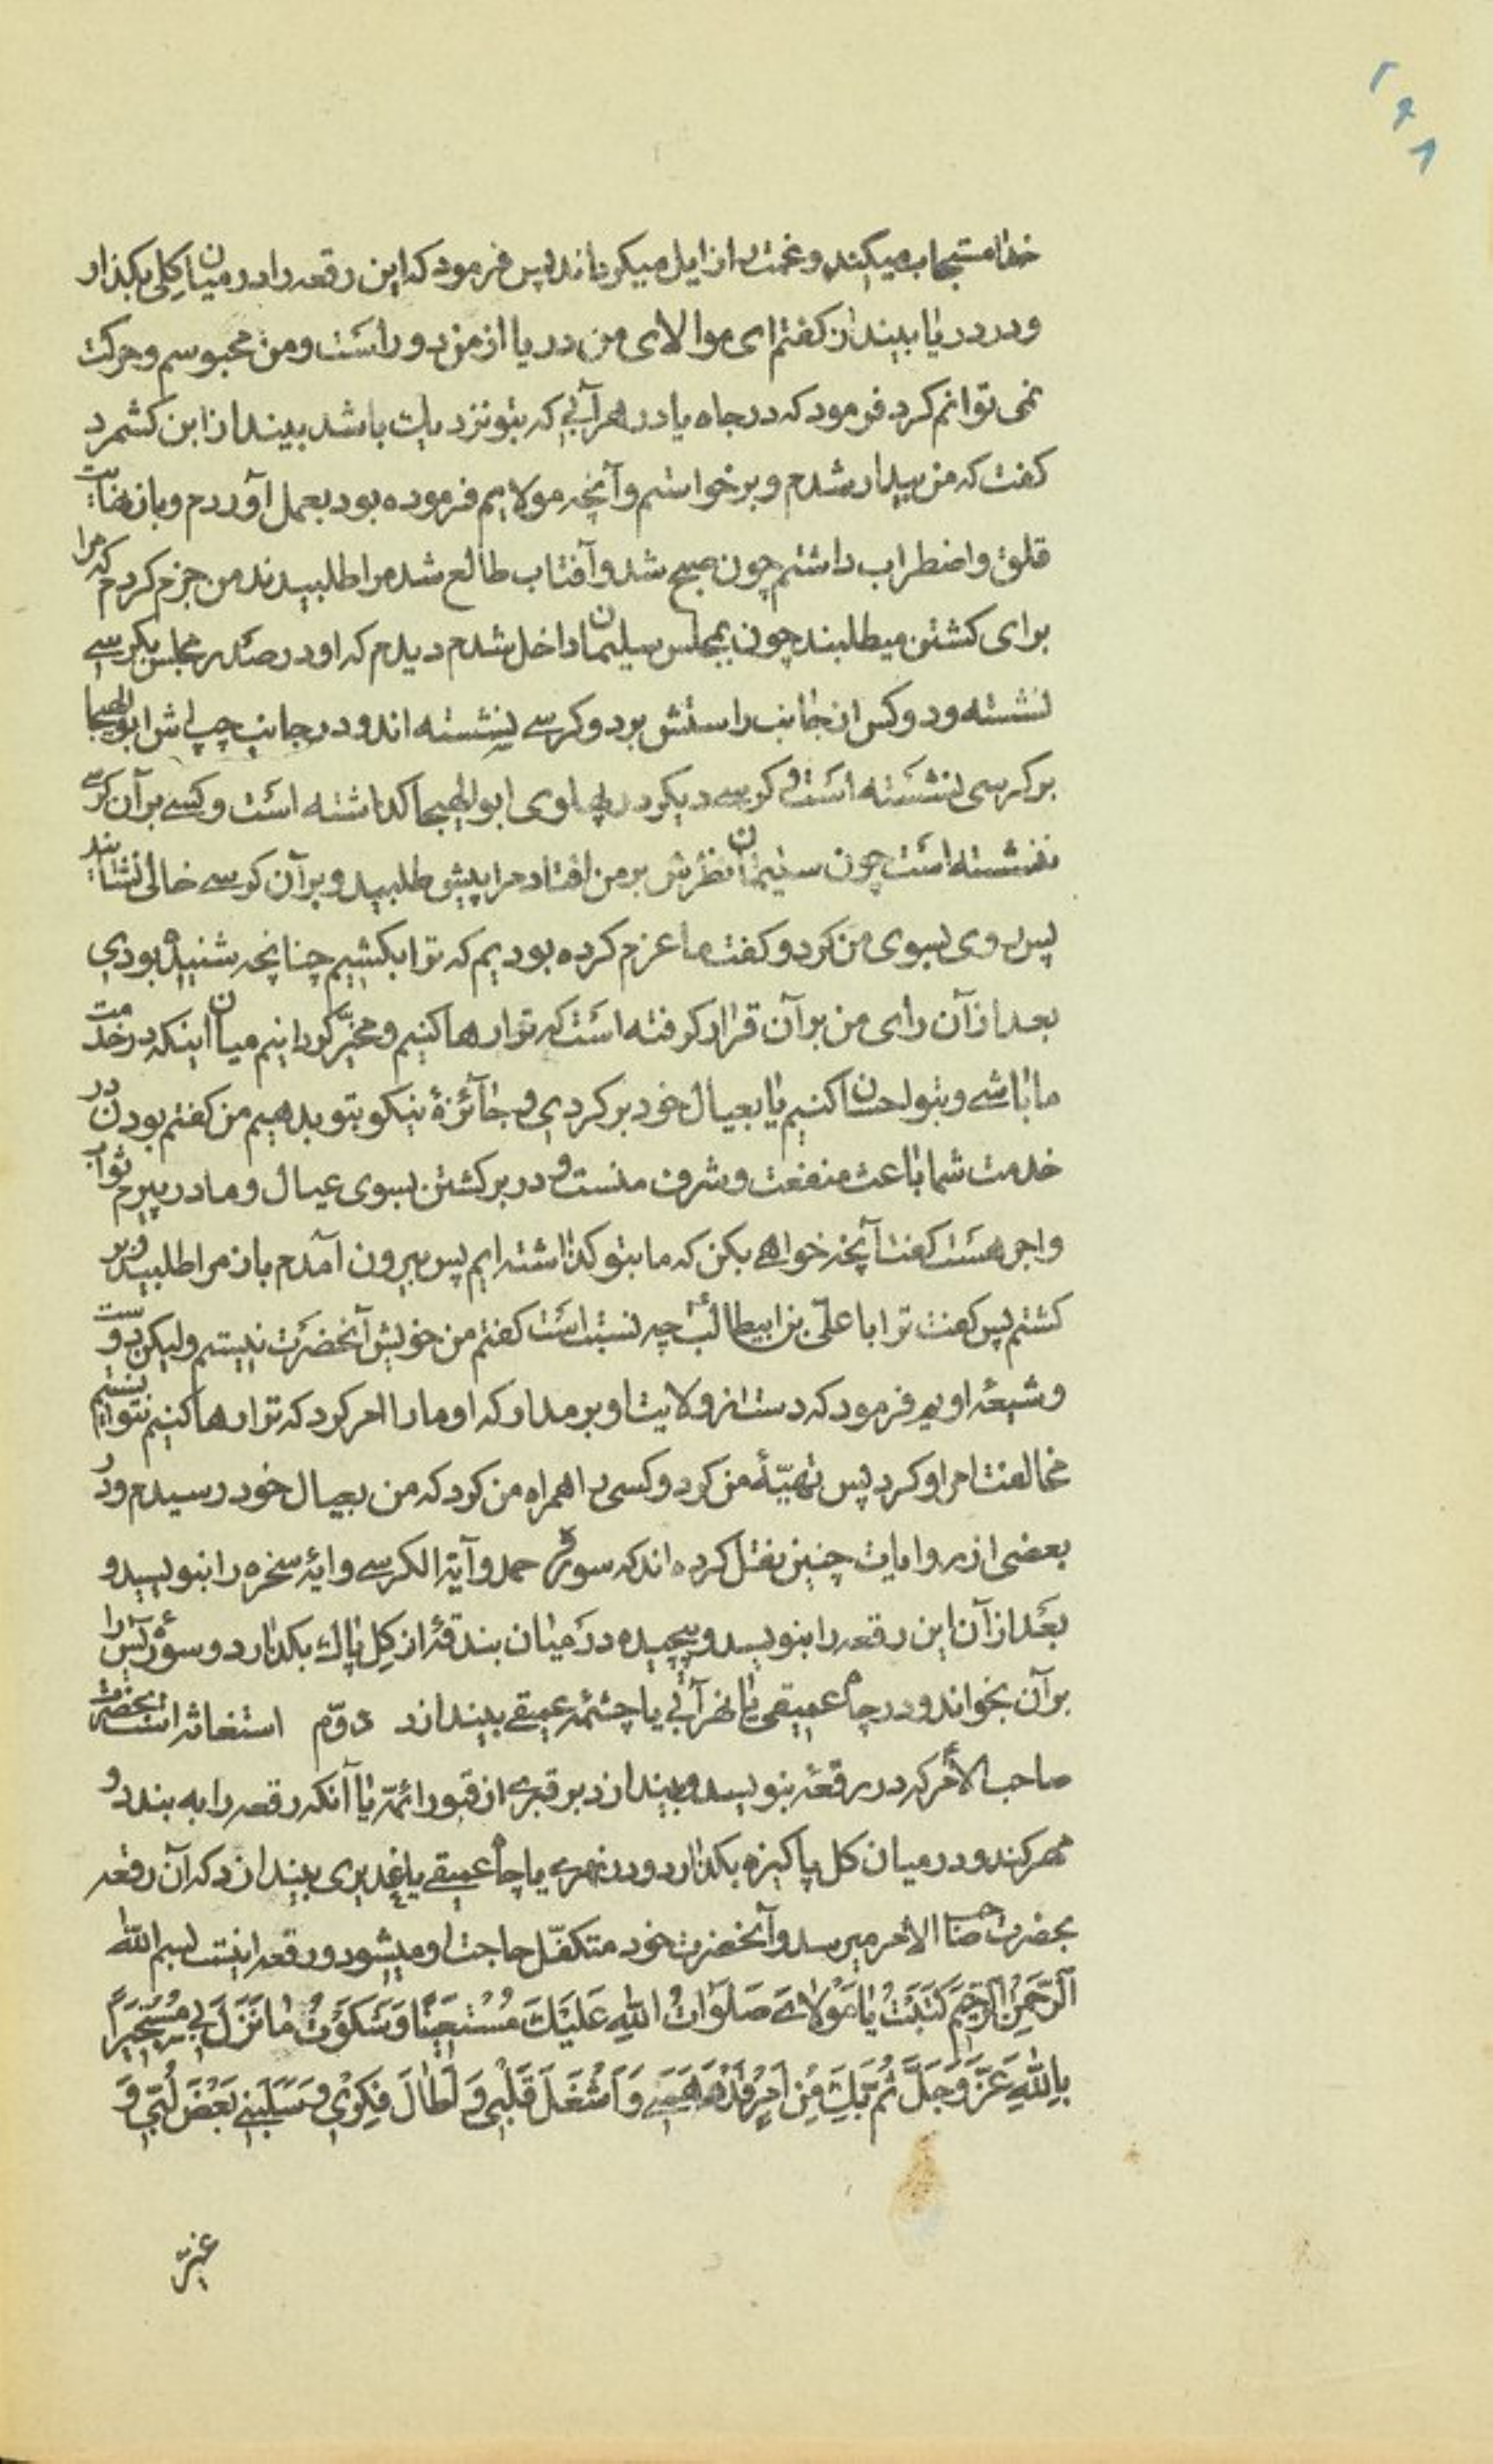 ۲۶۸
خدا مستجاب میکند و غمت را زایل میکرداند پس فرمود که این رقعه را در میان کلی بکذار
و در دریا بینداز کفتم ای مولای من دریا از من دور است و من محبوسم و حرکت
نمی توانم کرد فرمود که در چاه یا در هر آبی که بتو نزدیک باشد بینداز ابن کشمرد
کفت که من بیدار شدم و برخواستم و آنچه مولایم فرموده بود بعمل آوردم و باز نهایت
قلق و اضطراب داشتم چون صبح شد و آفتاب طالع شد مرا طلبیدند من جزم کردم که مرا
برای کشتن میطلبند چون بمجلس سلیمان داخل شدم دیدم که او در صدر مجلس بکرسی
نشسته و دو کس از جانب راستش بر دو کرسی نشسته اند و در جانب چپ اش ابو الهیجا
بر کرسی نشسته است و کرسی دیکر در پهلوی ابو الهیجا کذاشته است و کسی بر آن کرسی
ننشسته است چون سلیمان نظرش بر من افتاد مرا پیش طلبید و بر آن کرسی خالی نشانید
پس روی بسوی من کرد و کفت ما عزم کرده بودیم که ترا بکشیم چنانچه شنیده بودی
بعد از آن رای من بر آن قرار کرفته است که ترا رها کنیم و مخیر کردانیم میان اینکه در خدمت
ما باشی و بتو احسان کنیم یا بعیال خود بر کردی و جائزهٔ نیکو بتو بدهیم من کفتم بودن در
خدمت شما باعث منفعت و شرف منست و در برکشتن بسوی عیال و مادر پیرم ثواب
و اجر هست کفت آنچه خواهی بکن که ما بتو کذاشته ایم پس بیرون آمدم باز مرا طلبید و بر
کشتم پس کفت ترا با علی بن ابیطالب ع چه نسبت است کفتم من خویش آنحضرت نیستم ولیکن دوست
و شیعهٔ اویم فرمود که دست از ولایت او بر مدار که او ما را امر کرد که ترا رها کنیم نتوانستیم
مخالفت امر او کرد پس تهیّهٔ من کرد و کسی را همراه من کرد که من بعیال خود رسیدم و در
بعضی از روایات چنین نقل کرده اند که سورهٔ حمد و آیة الکرسی و ایهٔ سخره را بنویسد و
بعد از آن این رقعه را بنویسد و پیچیده در میان بندقهٔ از کل پاک بکذارد و سورهٔ یس را
بر آن بخواند و در چاه عمیقی یا نهر آبی یا چشمهٔ عمیقی بیندازد دوّم استغاثه است بحضرت
صاحب الأمر ع که در رقعهٔ بنویسد و بیندازد بر قبری از قبور ائمّه یا آنکه رقعه را به بندد و
مهر کند و در میان کل پاکیزه بکذارد و در نهری یا چاه عمیقی یا غدیری بیندازد که آن رقعه
بحضرت صاحب الامر میرسد و آنحضرت خود متکفّل حاجت او میشود و رقعه اینست بسم الله
الرَّحْمنِ الرَّحیمِ کَتَبْتُ یا مَوْلایَ صَلَواتُ اللهِ عَلَیْكَ مُسْتَغیثًا وَ شَکَوْتُ ما نَزَلَ بی مُسْتَجیرًا
بِاللهِ عَزَّ وَ جَلَّ ثُمَّ بِكَ مِنْ اَمْرٍ قَدْ دَهَمَنی وَ اَشْغَلَ قَلْبی وَ اَطالَ فِکْری وَ سَلَبَنی بَعْضَ لُبّی وَ
غیّر